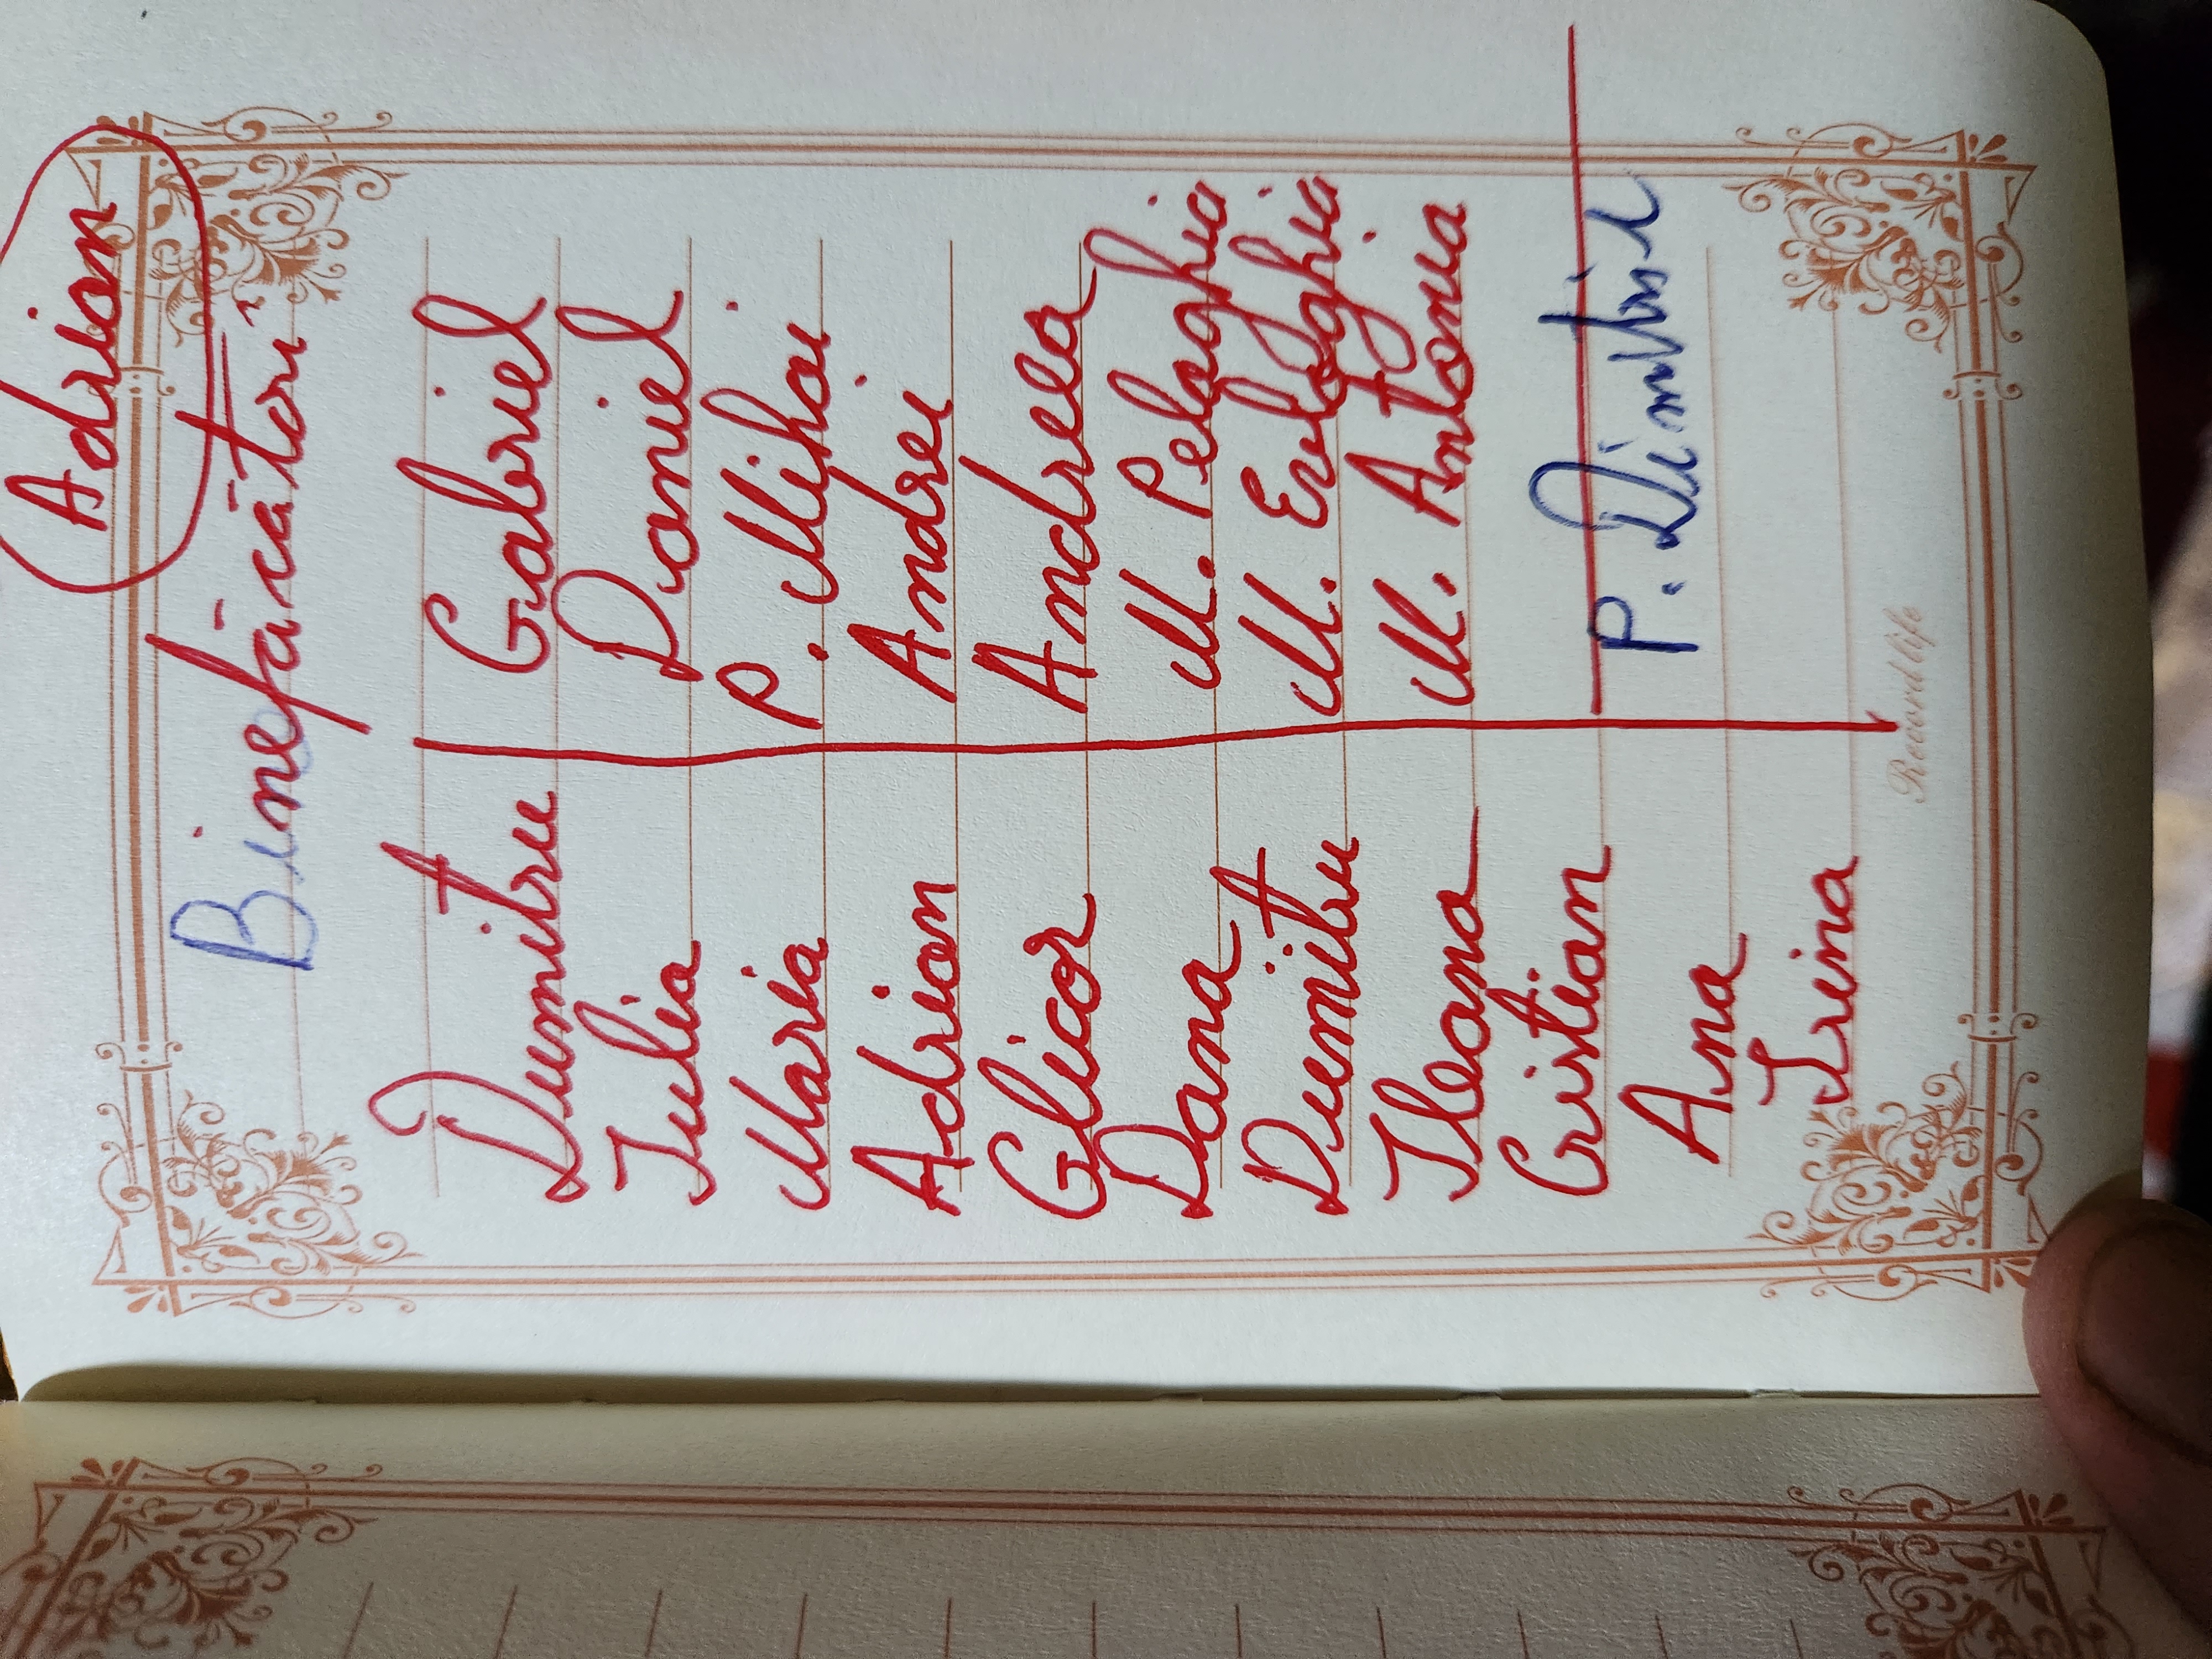 Adrian
Binefăcători
Dumitru
Iulia
Maria
Adrian
Glicor
Dana
Dumitru
Ileana
Cristian
Ana
Irina
Gabriel
Daniel
P. Mihai
Andrei
Andreea
M. Pelaghia
M. Evloghia
M. Antonia
P. Dimitrie
Recordlife